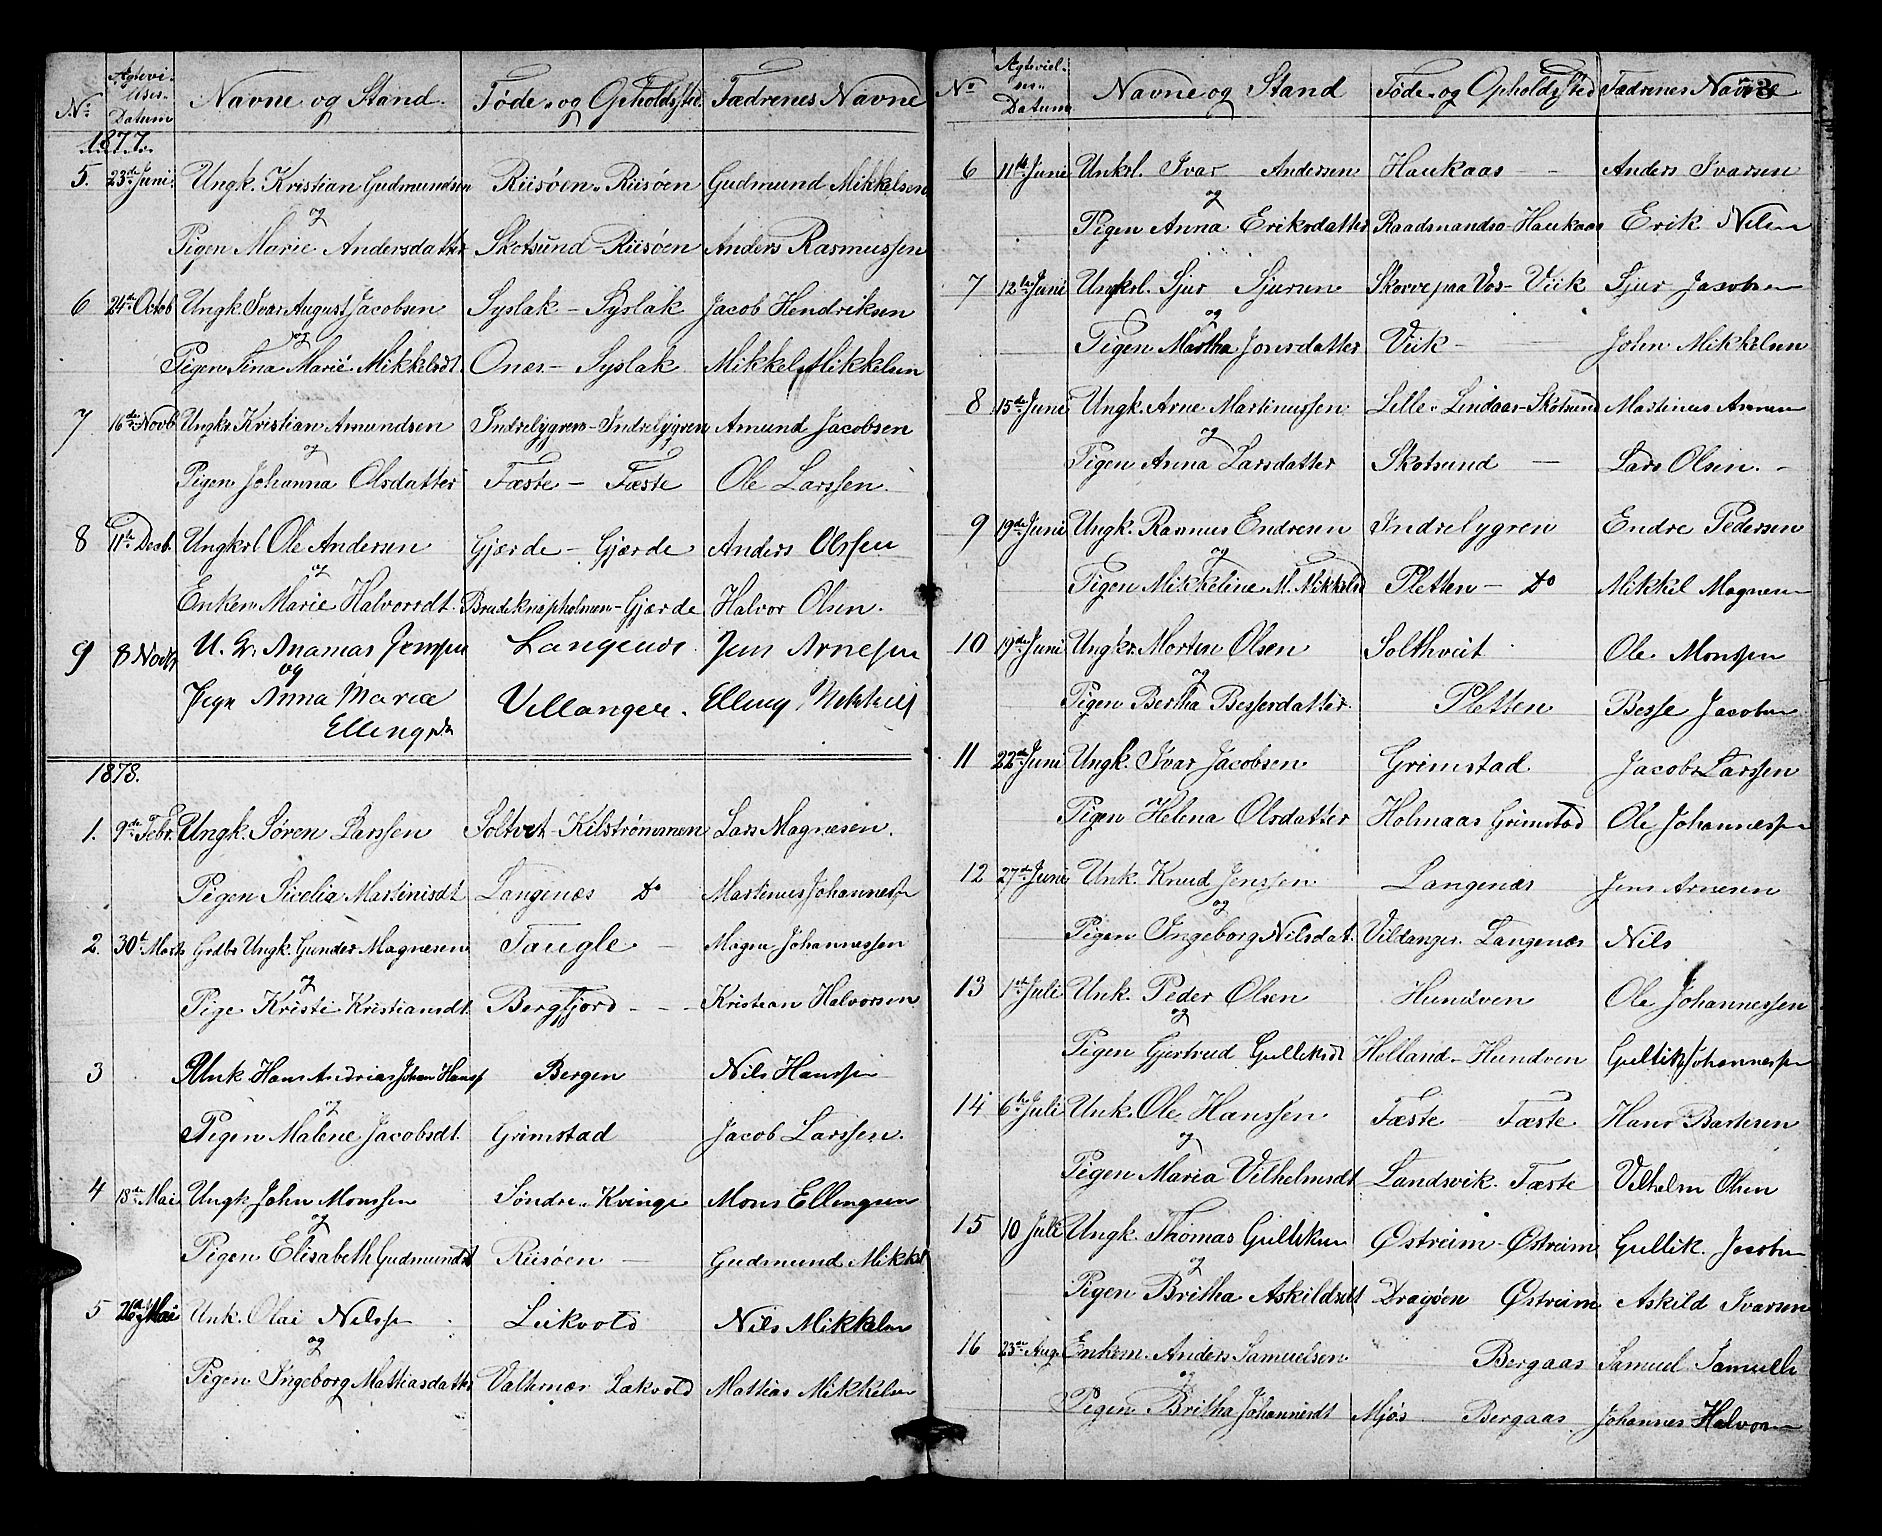 No. Agtevi- elses- Datum Navne og Stand. Föde- og Opholdssted Fædrenes Navne
1877.
5. 23de Juni. Ungk. Kristian Gudmundsen Riisøen - Riisøen Gudmund Mikkelsen
og
Pigen Marie Andersdatter Skotsund - Riisøen Anders Rasmussen
6 24de Octob Ungk. Ivar August Jacobsen Syslak - Syslak Jacob Hendriksen
og
Pigen Sina Marie Mikkelsdt. Ones - Syslak Mikkel Mikkelsen
7 16de Novb Ungkr Kristian Amundsen Indrelygren - Indrelygren Amund Jacobsen
og
Pigen Johanna Olsdatter Fæste - Fæste Ole Larssen.
8 11te Decb. Ungkrl Ole Andersen Gjærde - Gjærde Anders Olssen
og
Enken Marie Halvorsdt. Brudeknapholmen - Gjærde Halvor Olsen.
9 8 Novbr U. K. Ananias Jenssen Langenæs Jens Arnesen
og
Pige Anna Maria Villanger. Elling
Ellingsdr
1878.
1. 9de Febr. Ungk. Søren Larssen Soltvet - Kilstrømmen Lars Magnesen.
Pigen Sicelia Martinisdt Langenæs Do Martinus Johannessn
2. 30te Marts Grdbr Ungk. Gunder Magnesen Taugle - Magne Johannessen
og
Pige Kristi Kristiansdt. Bergfjord - - - Kristian Halvorsen
3 Unk Hans Andrias Johan Hanss Bergen Nils Hanssen
og
Pigen Malene Jacobsdt. Grimstad Jacob Larssen.
4 18de Mai Ungk John Monssen Søndre - Kvinge Mons Ellingsen
og
Pigen Elisabeth Gudmundsdt Riisøen - Gudmund Mikkel
5 26de Mai Unk. Olai Nilssn Leikvold Nils Mikkelsen
og
Pigen Ingeborg Mattiasdatter Valternær Lækvold Mattias Mikkelsen
3
No Agteviel- ses- Datum Navne og Stand Föde- og Opholdssted Fædrenes Navne
6 11te Juni Unkrl. Ivar Andersen Haukaas - - Anders Ivarsen
og
Pigen Anna Eriksdatter Raadmandsø - Haukaas Erik Nilsen
7 12te Juni Ungkrl. Sjur Sjursen Skorve paa Vos - Viik Sjur Jacobsen
og
Pigen Martha Jonsdatter Viik - John Mikkelsen
8 15de Juni Ungk. Arne Martinussen Lille - Lindaas - Skotsund Martinus Arnesen
og
Pigen Anna Larsdatter Skotsund - Lars Olsen. -
9 19de Juni Ungk. Rasmus Endresen Indrelygren Endre Pedersen
og
Pigen Mikkeline M. Mikkelsd Pletten - Do Mikkel Magnesen
10 19de Juni Ungkr. Morten Olsen Solthveit Ole Monssen
og
Pigen Bertha Bessesdatter. Pletten Besse Jacobsen
11 22de Juni Ungk. Ivar Jacobsen Grimstad Jacob Larssen
Pigen Helena Olsdatter Holmaas Grimstad Ole Johannessn
12 27de Juni Unk. Knud Jenssen Langenæs Jens Arnesen
og
Pigen Ingeborg Nilsdat. Vildanger. Langenæs Nils
13 1ste Juli Unk. Peder Olsen Hundven Ole Johannessen
og
Pigen Gjertrud Gulliksdt Helland - Hundven Gullik Johannessn
14 6te Juli Unk. Ole Hanssen Fæste Fæste Hans Bartesen
og
Pigen Maria Vilhelmsdt Landsvik. Fæste Vilhelm Olsen
15 10 Juli Ungk. Thomas Gulliksen Østreim - Østreim Gullik. Jacobsen
og
Pigen Britha Askildsdt Dragøen Østreim Askild Ivarsen
16 23de Aug. Enkem. Anders Samuelsen. Bergaas Samuel Samuels
og
Pigen Britha Johannesdt Mjøs Bergaas Johannes Halvorsn